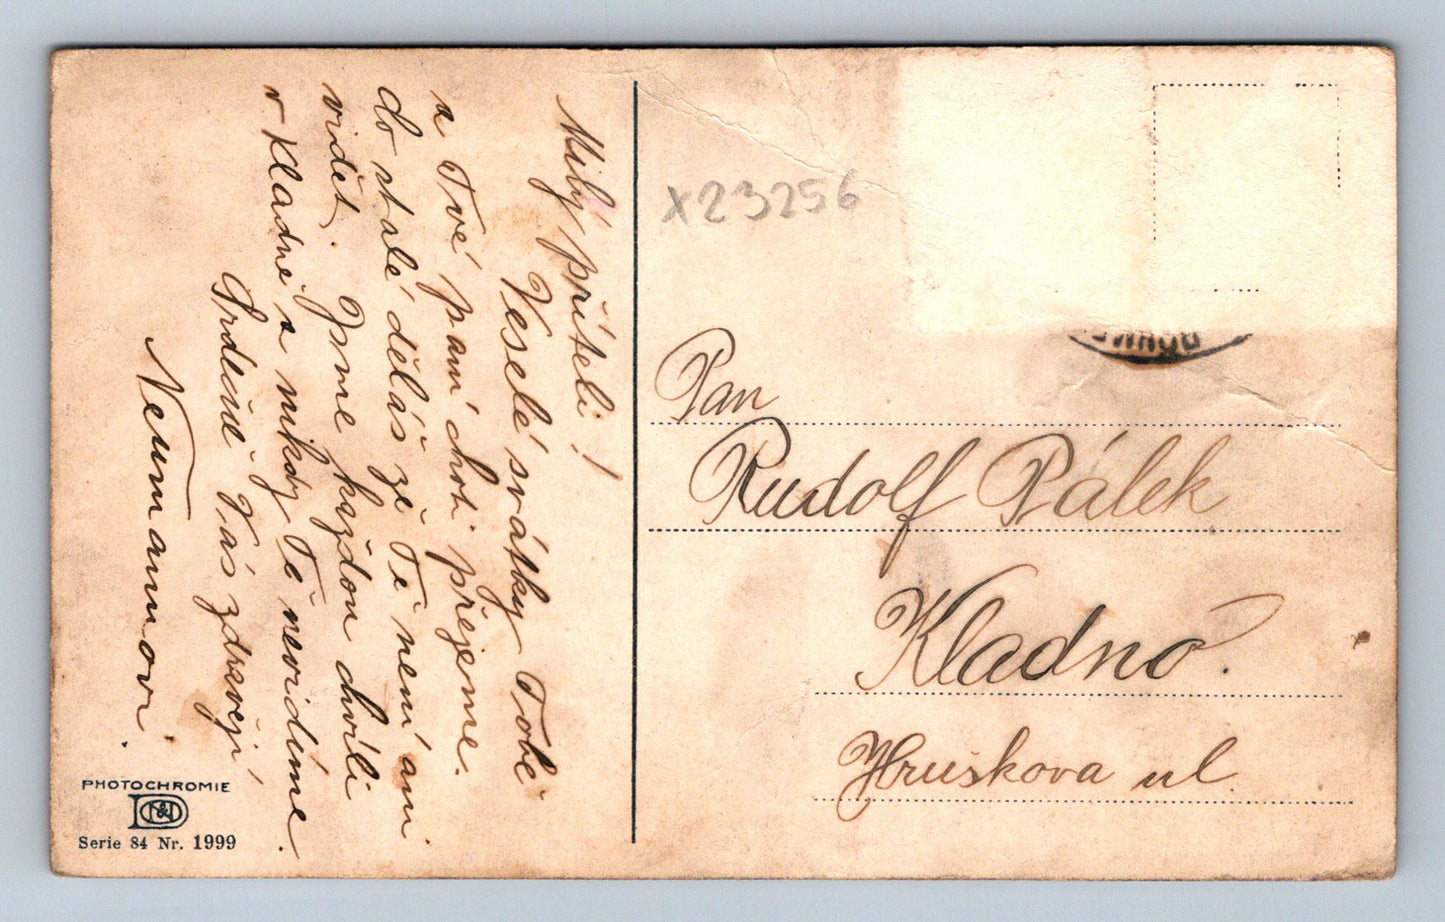 Milý příteli!
Veselé svátky Tobě
a Tvé paní choti přejeme.
do stalé děláš že Tě není ani
vidět. Jsme každou chvíli
v Kladně a nikdy Tě nevidíme.
Srdečně Vás zdravějí
Neumannovi.
PHOTOCHROMIE
Serie 84 Nr. 1999
X23256
Pan
Rudolf Pálek
Kladno.
Hruškova ul.